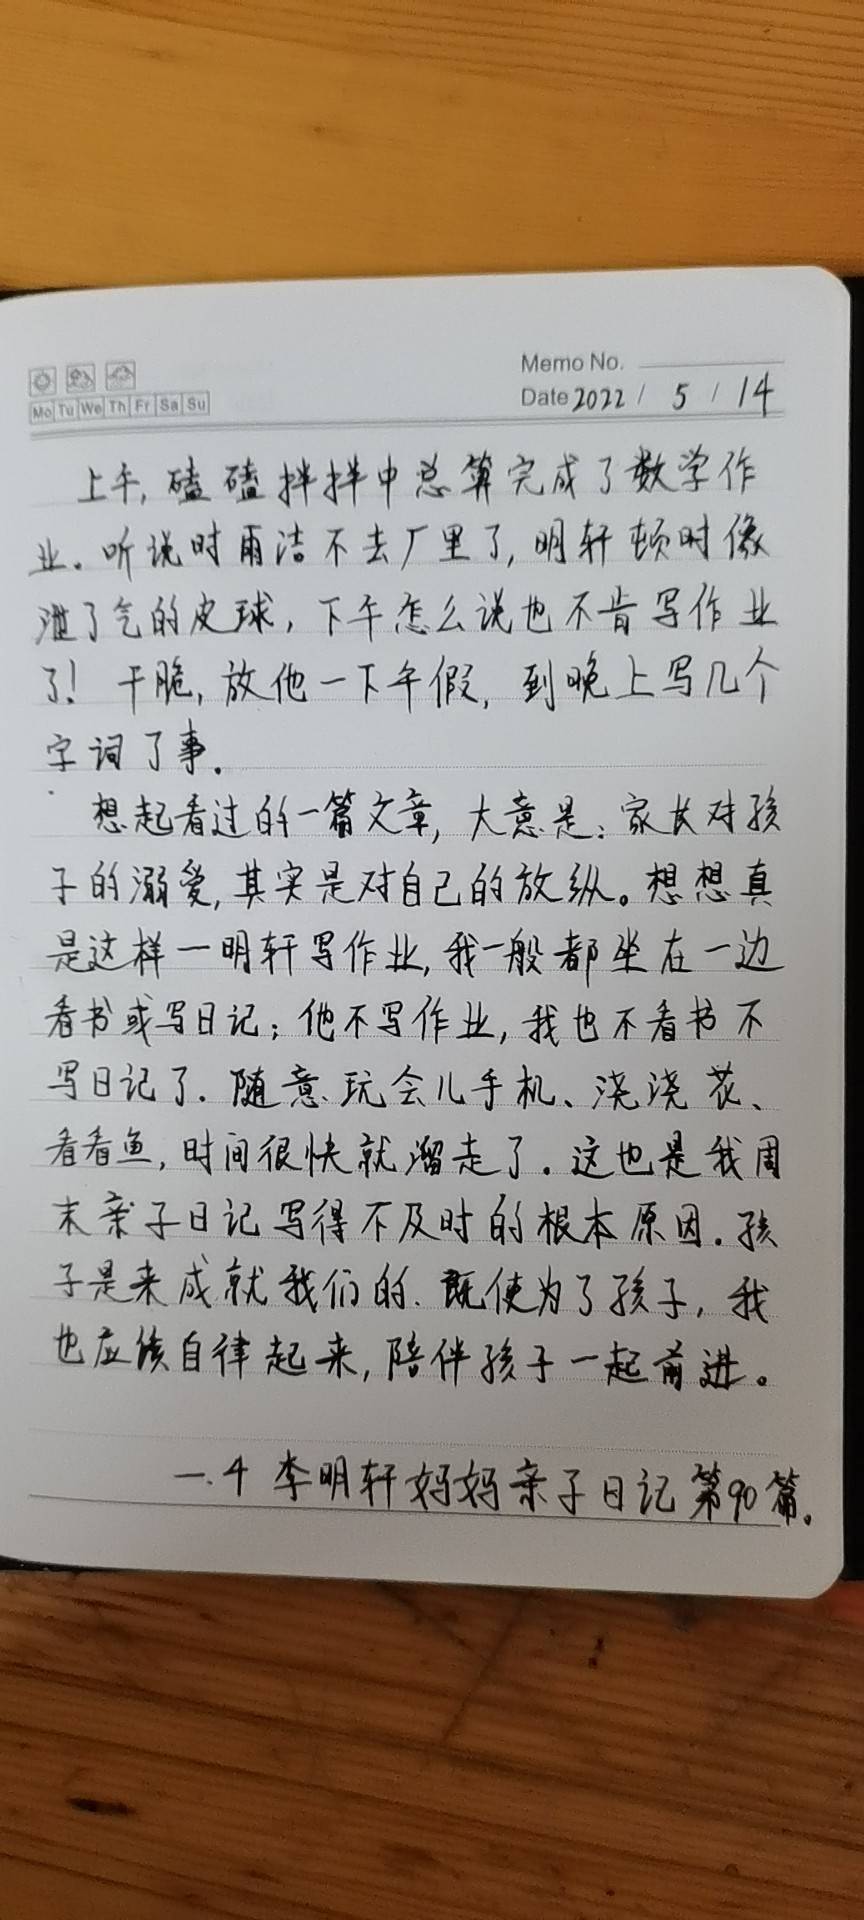 Memo No.
Mo Tu We Th Fr Sa Su
Date 2022 / 5 / 14
上午,磕磕拌拌中总算完成了数学作
业。听说时雨洁不去厂里了,明轩顿时像
泄了气的皮球,下午怎么说也不肯写作业
了!干脆,放他一下午假,到晚上写几个
字词了事.
想起看过的一篇文章,大意是:家长对孩
子的溺爱,其实是对自己的放纵。想想真
是这样一明轩写作业,我一般都坐在一边
看书或写日记;他不写作业,我也不看书不
写日记了.随意玩会儿手机、浇浇花、
看看鱼,时间很快就溜走了.这也是我周
末亲子日记写得不及时的根本原因.孩
子是来成就我们的.既使为了孩子,我
也应该自律起来,陪伴孩子一起前进。
一.4 李明轩妈妈亲子日记第90篇。